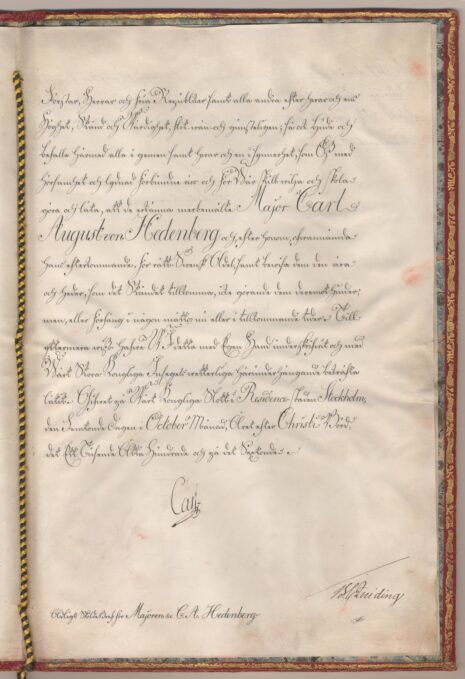 Förstar, Herrar och fria Republiker samt alla andra efter hvars och ens
Höghet, Stånd och Värdighet, flit, wän och gunsteligen; så ock bjude och
befalle härmed alla i gemen samt hvar och en i synnerhet, som Oss med
hörsamhet och lydnad förbindne äro och för Wår skull wilja och skola
göra och låta, att de erkänna merbemälte Major Carl
August von Hedenberg och, efter honom, ofvannämnda
hans efterkommande, för rätt Svensk Adel, samt bevisa dem den ära
och heder, som det Ståndet tillkomma, icke görande dem deremot hinder,
men, eller förfång i någon måtto nu eller i tillkommande tider. Till
yttermera wisso hafve Wi detta med Egen Hand underskrifvit och med
Wårt Stora Kongliga Insegels wetterliga härunder hängande bekräfta
låtit. Gifvet på Wårt Kongliga Slott i Residence-staden Stockholm,
den Femtonde Dagen i October Månad, Året efter Christi Börd,
det Ett Tusende Åtta Hundrade och på det Sextonde.
Carl
Adeligt Sköldebref för Majoren C. A. Hedenberg